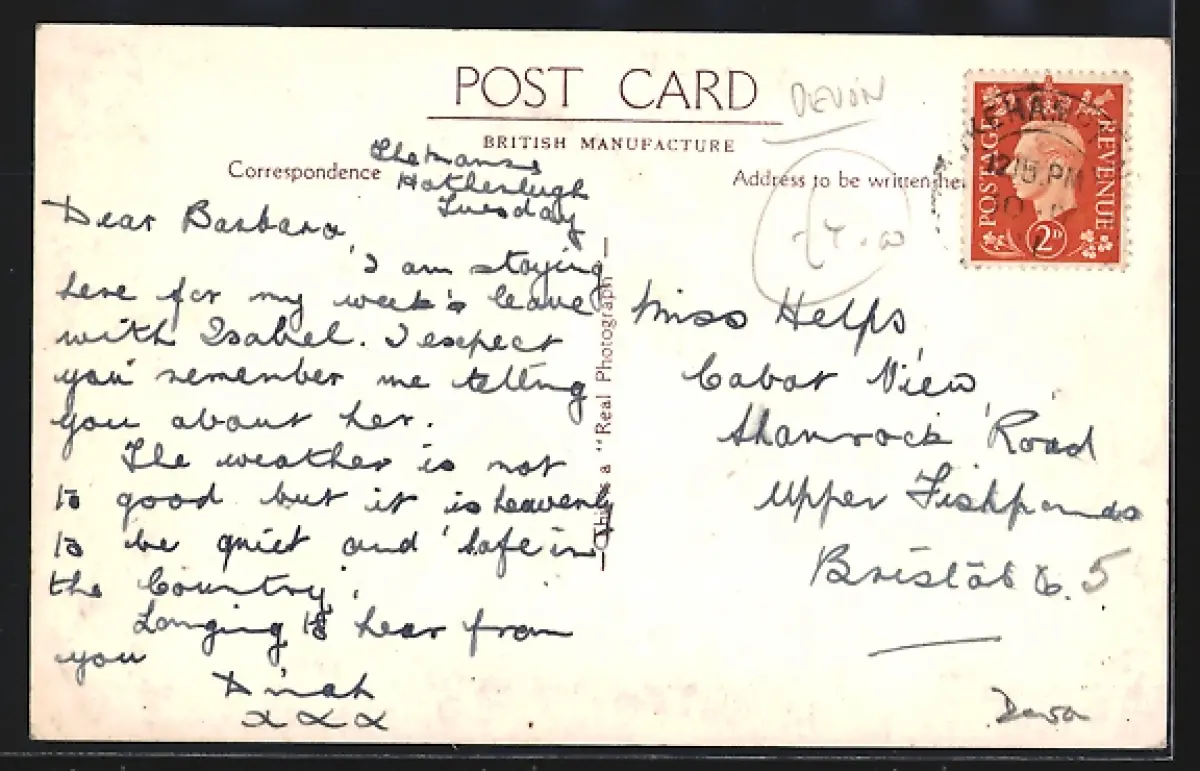 POST CARD
DEVON
BRITISH MANUFACTURE
Correspondence
Address to be written here
The Manse
Hatherleigh
Tuesday
Dear Barbara,
I am staying
here for my week's leave
with Isabel. I expect
you remember me telling
you about her.
The weather is not
to good but it is heavenly
to be quiet and 'safe in
the Country'.
Longing to hear from
you
Dinah
x x x
This is a "Real Photograph"
POSTAGE
REVENUE
2D
12 15 PM
Miss Helps,
Cabot View,
Shamrock Road
Upper Fishponds
Bristol 5